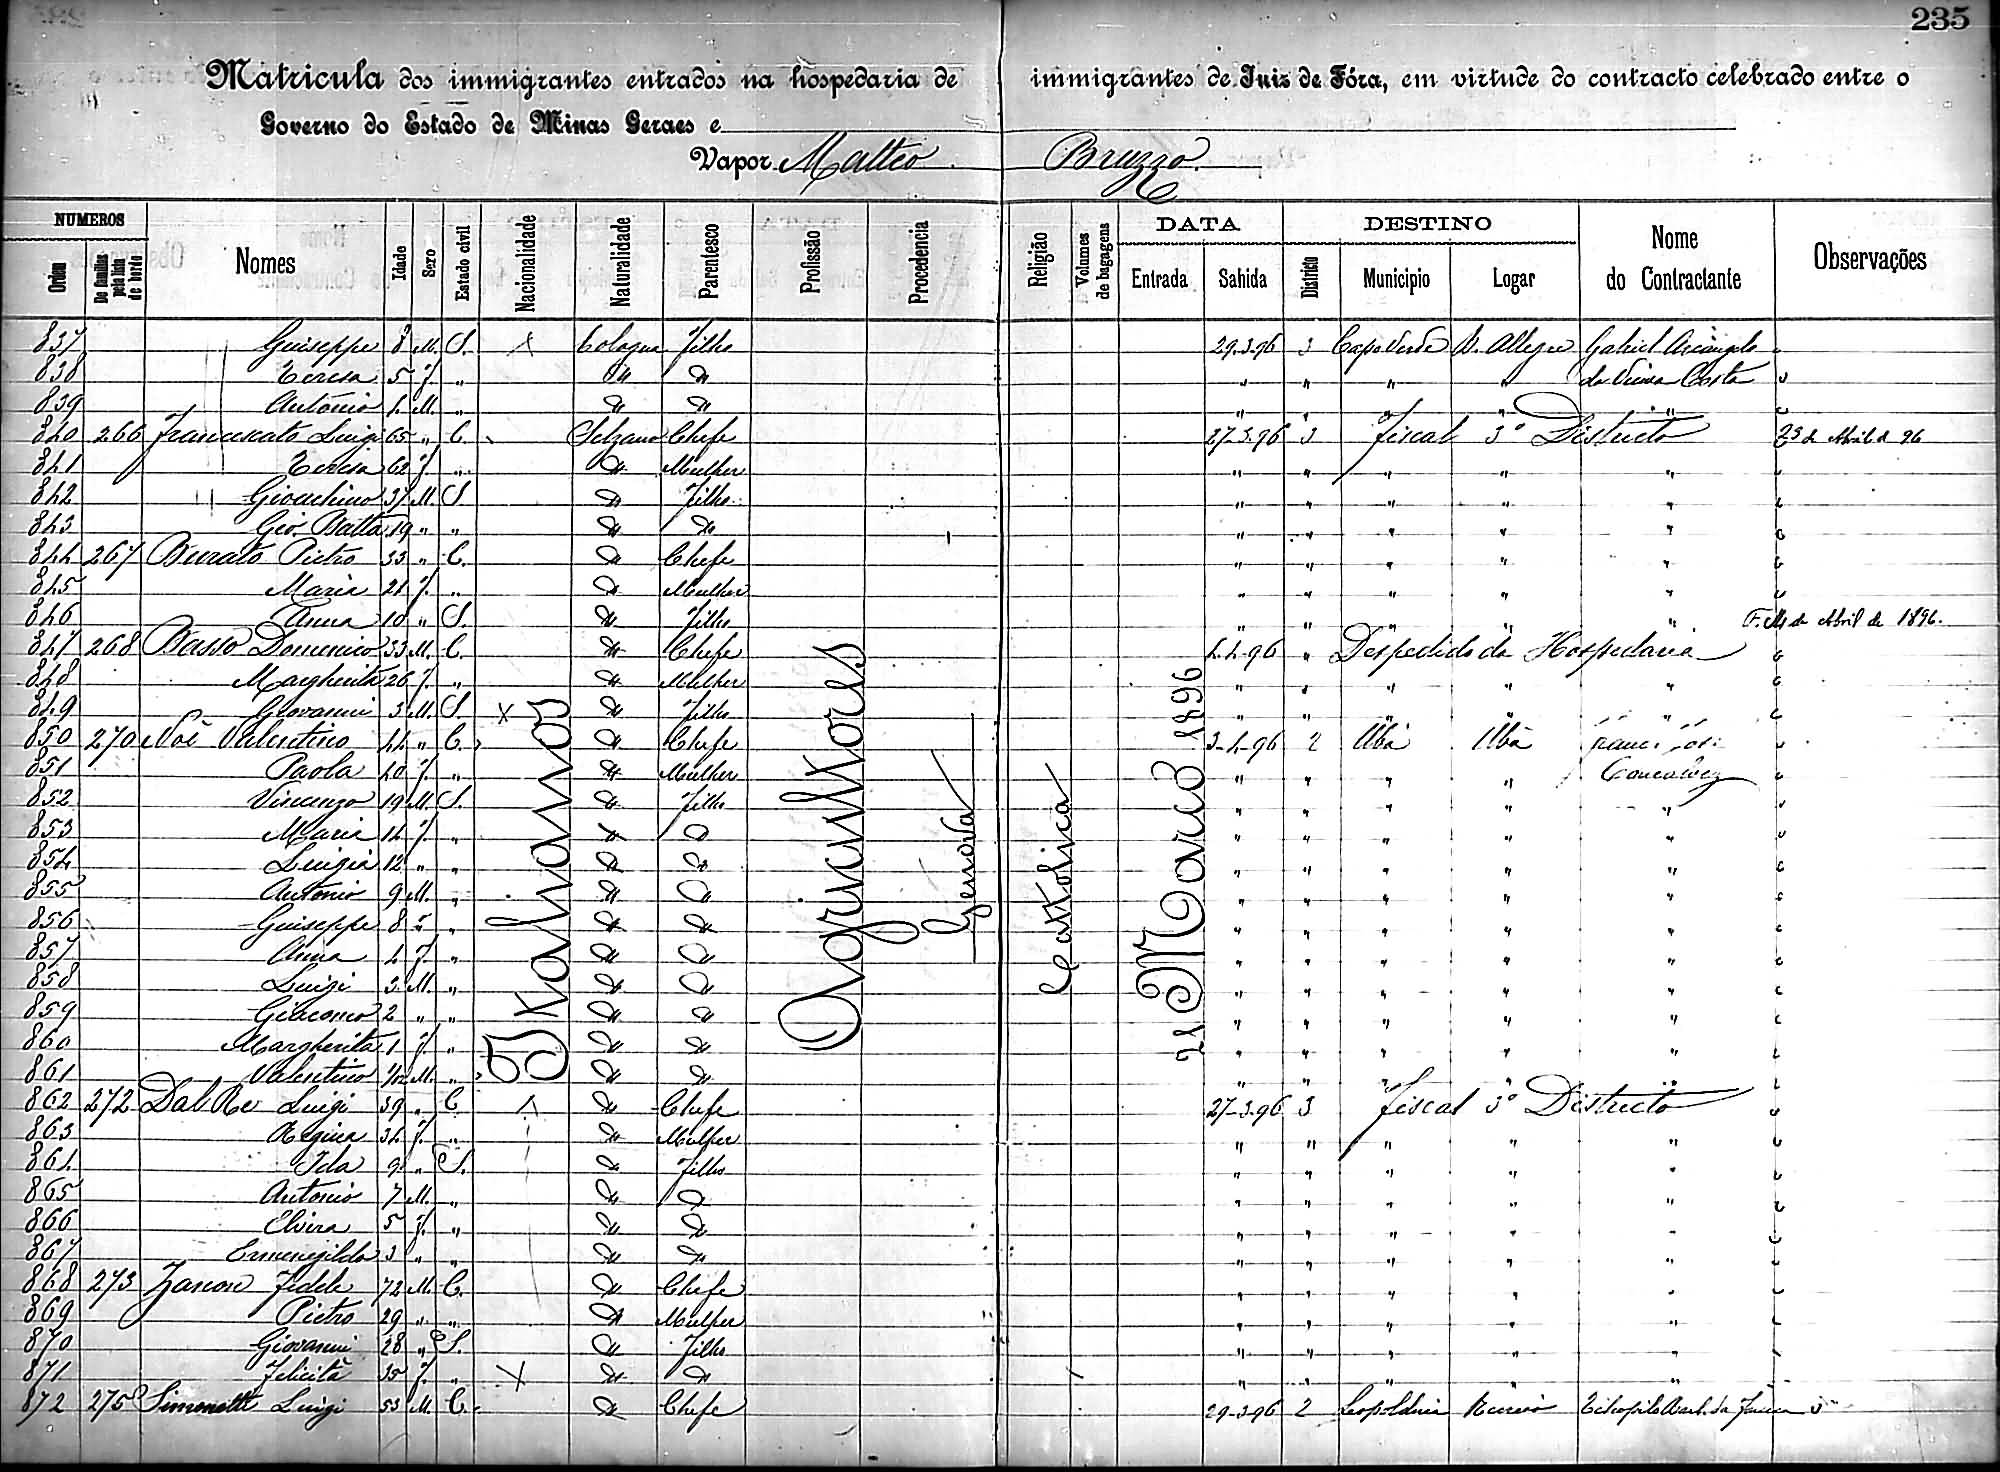 235
Matricula dos immigrantes entrados na hospedaria de immigrantes de Juiz de Fóra, em virtude do contracto celebrado entre o
Governo do Estado de Minas Geraes e
Vapor Matteo Bruzzo
NUMEROS Nomes Idade Sexo Estado civil Nacionalidade Naturalidade Parentesco Profissão Procedencia Religião Volumes de bagagens DATA DESTINO Nome do Contractante Observações
Ordem De familias pela lista de bordo Entrada Sahida Districto Municipio Logar
Italianos
Agricultores
Genova
Catholica
21 Março 1896
837 Guiseppe 8 M. S. Cologna Filho 29-3-96 3 Cabo Verde M. Allegre Gabriel Arcangelo
838 Teresa 5 F. " " " " " " " da Costa "
839 Antonio 1 M. " " " " " " " " "
840 266 Francescato Luigi 65 " C. Selzano Chefe 27-3-96 3 Fiscal 3º Districto 23 de Abril de 96
841 Teresa 62 F. " " Mulher " " " " " "
842 Gioachino 37 M. S. " Filho " " " " " "
843 Gio. Batta 19 " " " " " " " " " "
844 267 Burato Pietro 33 " C. " Chefe " " " " " "
845 Maria 21 F. " " Mulher " " " " " "
846 Anna 10 " S. " Filho " " " " " de Abril de 1896.
847 268 Basso Domenico 33 M. C. " Chefe 4-4-96 " Despedido da Hospedaria "
848 Margherita 26 F. " " Mulher " " " " " "
849 Giovanni 3 M. S. " Filho " " " " " "
850 270 Noè Valentino 44 " C. " Chefe 3-4-96 2 Ubá Ubá "
851 Paola 40 F. " " Mulher " " " " Goncalves "
852 Vincenzo 19 M. S. " Filho " " " " " "
853 Maria 14 F. " " " " " " " " "
854 Luigia 12 " " " " " " " " " "
855 Antonio 9 M. " " " " " " " " "
856 Guiseppe 8 " " " " " " " " " "
857 Anna 4 F. " " " " " " " " "
858 Luigi 3 M. " " " " " " " " "
859 Giacomo 2 " " " " " " " " " "
860 Margherita 1 F. " " " " " " " " "
861 Valentino M. " " " " " " " " "
862 272 Dal Re Luigi 39 " C. " Chefe 27-3-96 3 Fiscal 3º Districto "
863 Regina 34 F. " " Mulher " " " " " "
864 Ida 9 " S. " Filho " " " " " "
865 Antonio 7 M. " " " " " " " " "
866 Elvira 5 F. " " " " " " " " "
867 Ermenegilda 3 " " " " " " " " " "
868 273 Zanon Fidele 72 M. C. " Chefe " " " " " "
869 Pietro 29 " " " Mulher " " " " " "
870 Giovanni 28 " S. " Filho " " " " " "
871 Felicità 35 F. " " " " " " " " "
872 275 Simonetti Luigi 53 M. C. " Chefe 29-3-96 2 Leopoldina Recreio "